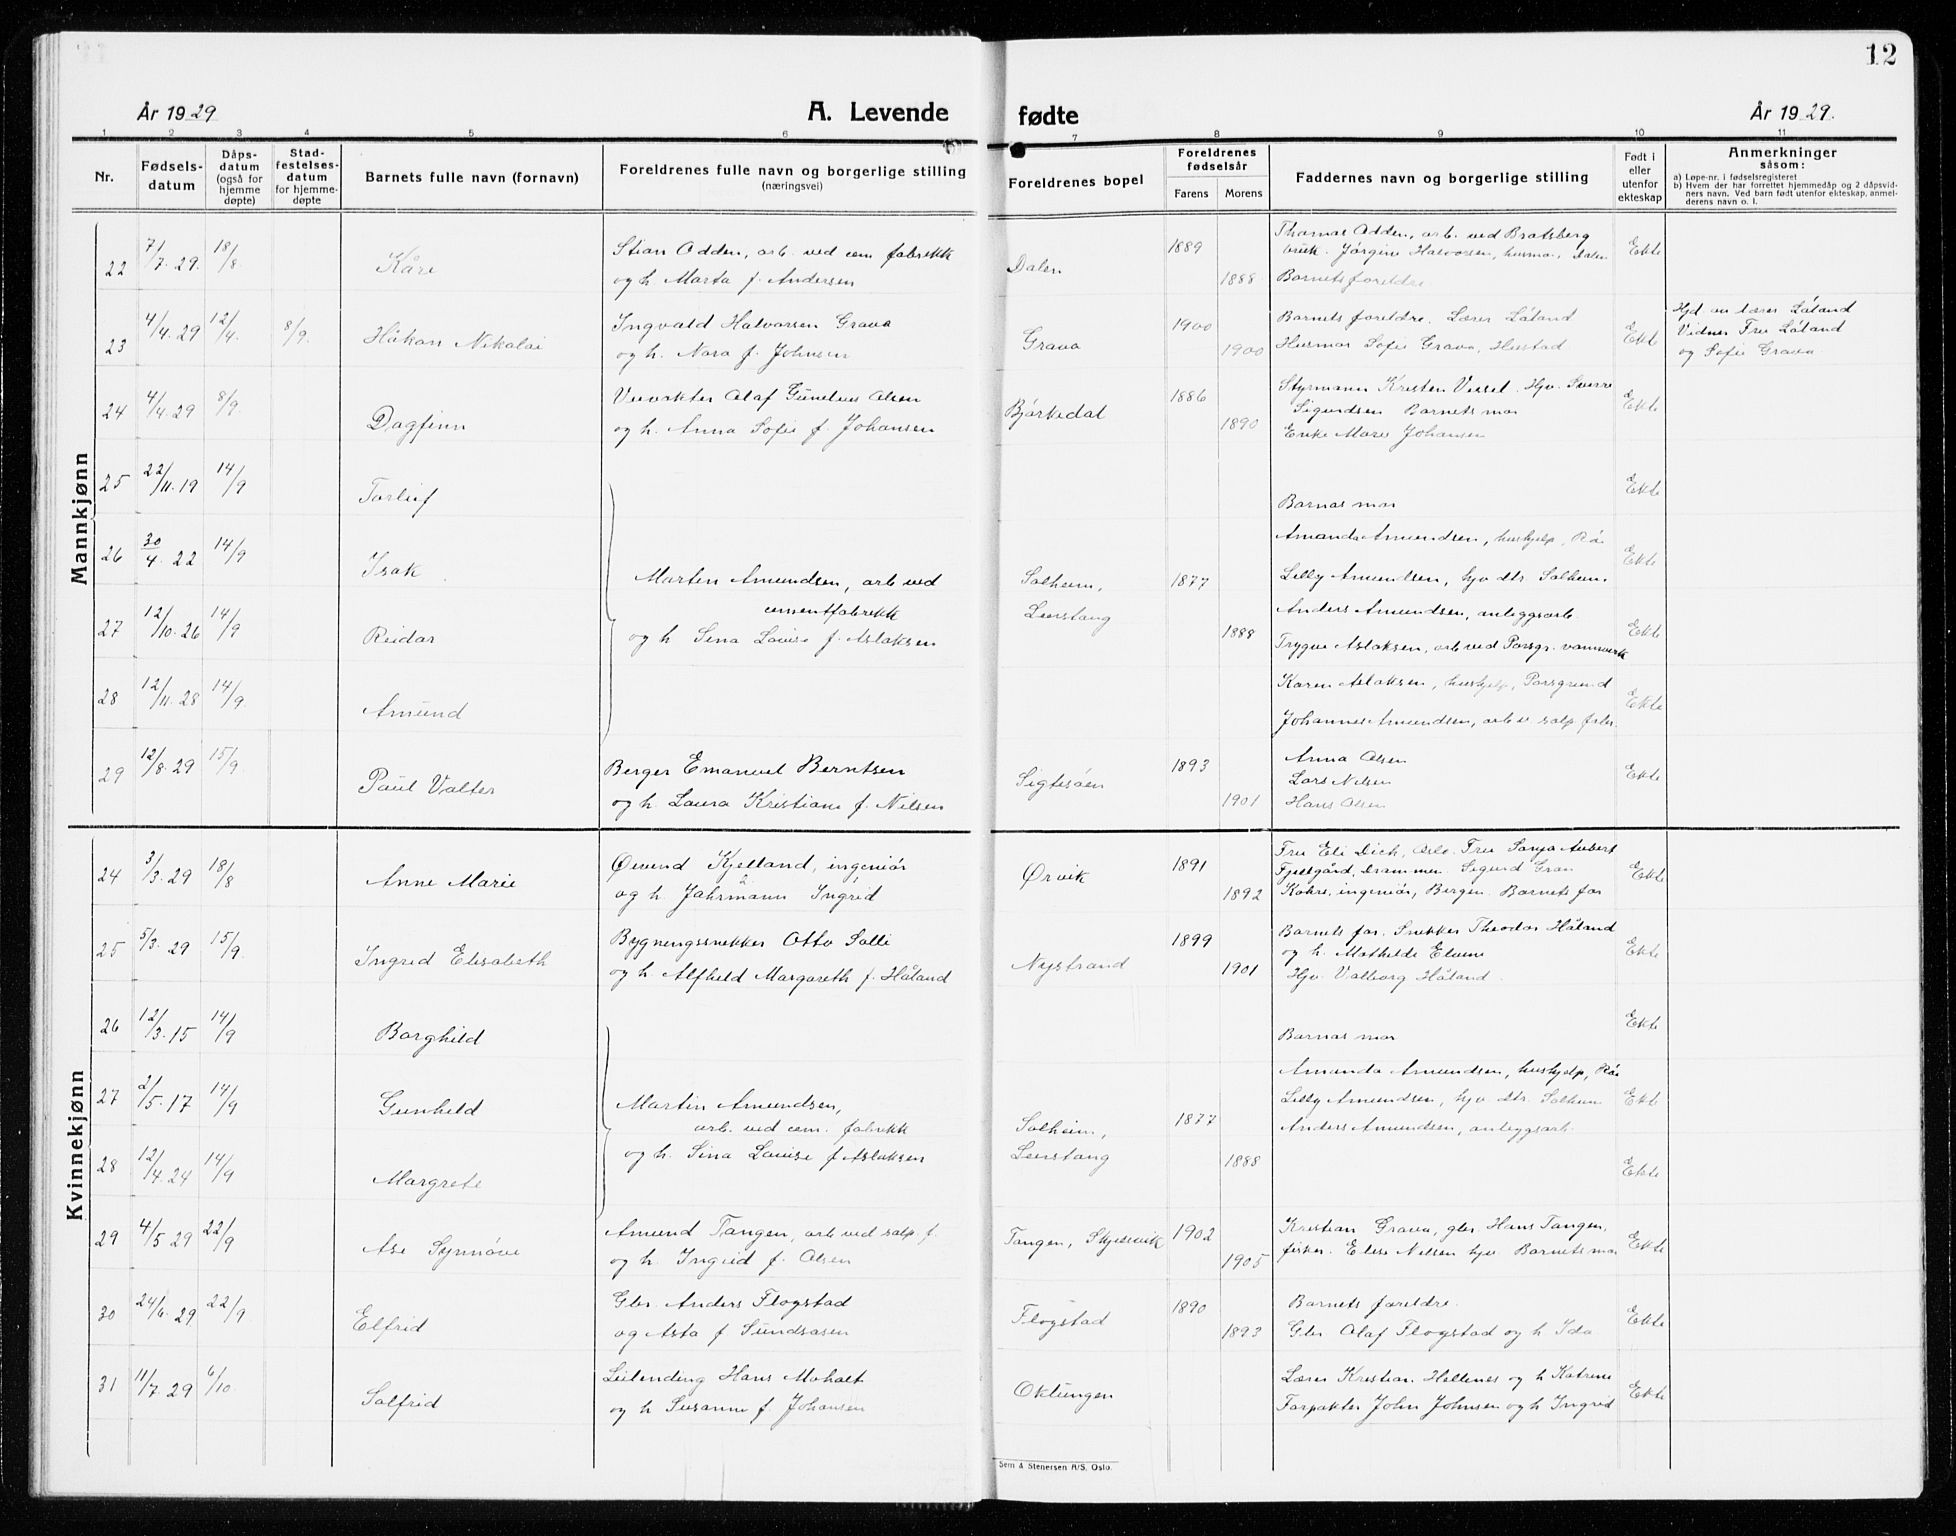 12
År 1929
A. Levende fødte
År 1929.
1 2 3 4 5 6 7 8 9 10 11
Nr.
Fødsels-
datum
Dåps-
datum
(også for
hjemme
døpte)
Stad-
festelses-
datum
for hjemme-
døpte
Barnets fulle navn (fornavn)
Foreldrenes fulle navn og borgerlige stilling
(næringsvei)
Foreldrenes bopel
Foreldrenes
fødselsår
Farens Morens
Faddernes navn og borgerlige stilling
Født i
eller
utenfor
ekteskap
Anmerkninger
såsom:
a) Løpe-nr. i fødselsregisteret
b) Hvem der har forrettet hjemmedåp og 2 dåpsvid-
ners navn. Ved barn født utenfor ekteskap, anmel-
derens navn o. l.
Mannkjønn
22 7/7. 29. 18/8. Kåre
Stian Odden, arb. ved cem fabrekk
og h. Marta f. Andersen
Dalen 1889 1888
Thomas Odden, arb. ved Bratsberg
bruk. Jørgine Halvorsen, husmor, Dalen
Barnets foreldre
Ekte
23 4/4. 29 12/4. 8/9. Håkon Nikolai
Ingvald Halvorsen Grava
og h. Nora f. Johnsen
Grava 1900 1900
Barnets foreldre. Lærer Låland
Husmor Sofie Grava, Hustad
Ekte
Hjd av lærer Låland
Vidner Fru Låland
og Sofie Grava
24 4/4. 29 8/9. Dagfinn
Veivokter Olaf Gunelius Olsen
og h. Anna Sofie f. Johansen
Bjørkedal 1886 1890
Styrmann Kristen Vessel. Hjv. Sverre
Sigurdsen Barnets mor
Enke Marie Johansen
Ekte
25 22/11. 19 14/9 Torleif
Barnas mor
Ekte
26 30/4. 22 14/9 Isak
Martin Amundsen, arb ved
cementfabrekk
og h Sina Louise f. Aslaksen
Solheim,
Leerstang
1877 1888
Amanda Amundsen, hushjelp, Rå
Lilly Amundsen, hjv dtr. Solheim.
Ekte
27 12/10. 26 14/9 Reidar
Anders Amundsen, anleggsarb.
Trygve Aslaksen, arb ved Porsgr. vannverk
Ekte
28 12/11. 28 14/9. Amund
Karen Aslaksen, hushjelp, Porsgrund
Johannes Amundsen, arb v. salp fabr.
Ekte
29 12/8. 29 15/9. Paul Valter
Berger Emanuel Berntsen
og h. Laura Kristiane f. Nilsen
Sigtesøen 1893 1901
Anna Olsen
Lars Nilsen
Hans Olsen
Ekte
Kvinnekjønn
24 3/3. 29 18/8 Anne Marie
Øivend Kjelland, ingeniør
og h. Jahrmann Ingrid
Ørvik 1891 1892
Fru Eli Dich, Oslo. Fru Sonja Aubert
Fjellgård, Drammen. Sigurd Gran
Kahrs, ingeniør, Bergen. Barnets far
Ekte
25 5/3. 29 15/9. Ingrid Elisabeth
Bygningssnekker Otto Solli
og h. Alfheld Margareth f. Håland
Nystrand 1899 1901
Barnets far. Snekker Theodor Håland
og h. Mathilde Elvine
Hjv. Valborg Håland.
Ekte
26 12/3. 15 14/9 Borghild
Barnas mor
Ekte
27 2/5. 17 14/9 Gunhild
Martin Amundsen,
arb. ved cem. fabrekk
og h. Sina Louise f Aslaksen
Solheim,
Leerstang
1877 1888
Amanda Amundsen, hushjelp, Rå
Lilly Amundsen, hjv dtr. Solheim
Anders Amundsen, anleggsarb.
Ekte
28 12/4. 24 14/9 Margrete
Ekte
29 4/5 29 22/9 Åse Synnøve
Amund Tangen, arb ved salp. f.
og h. Ingrid f. Olsen
Tangen, Skjelsvik 1902 1905
Kristian Grava, gbr. Hans Tangen,
fisker. Elise Nilsen hjv. Barnets mor
Ekte
30 24/6. 29 22/9 Elfrid
Gbr. Anders Flogstad
og Asta f Sundsåsen
Flogstad 1890 1893
Barnets foreldre.
Gbr Olaf Flogstad og h. Ida
Ekte
31 11/7 29 6/10. Solfrid
Leilending Hans Moholt
og h Susanne f. Johansen
Oklungen
Lærer Kristian Hellenes og h Katrine
Forpakter John Johnsen og h Ingrid
Ekte
Sem & Stenersen A/S, Oslo.